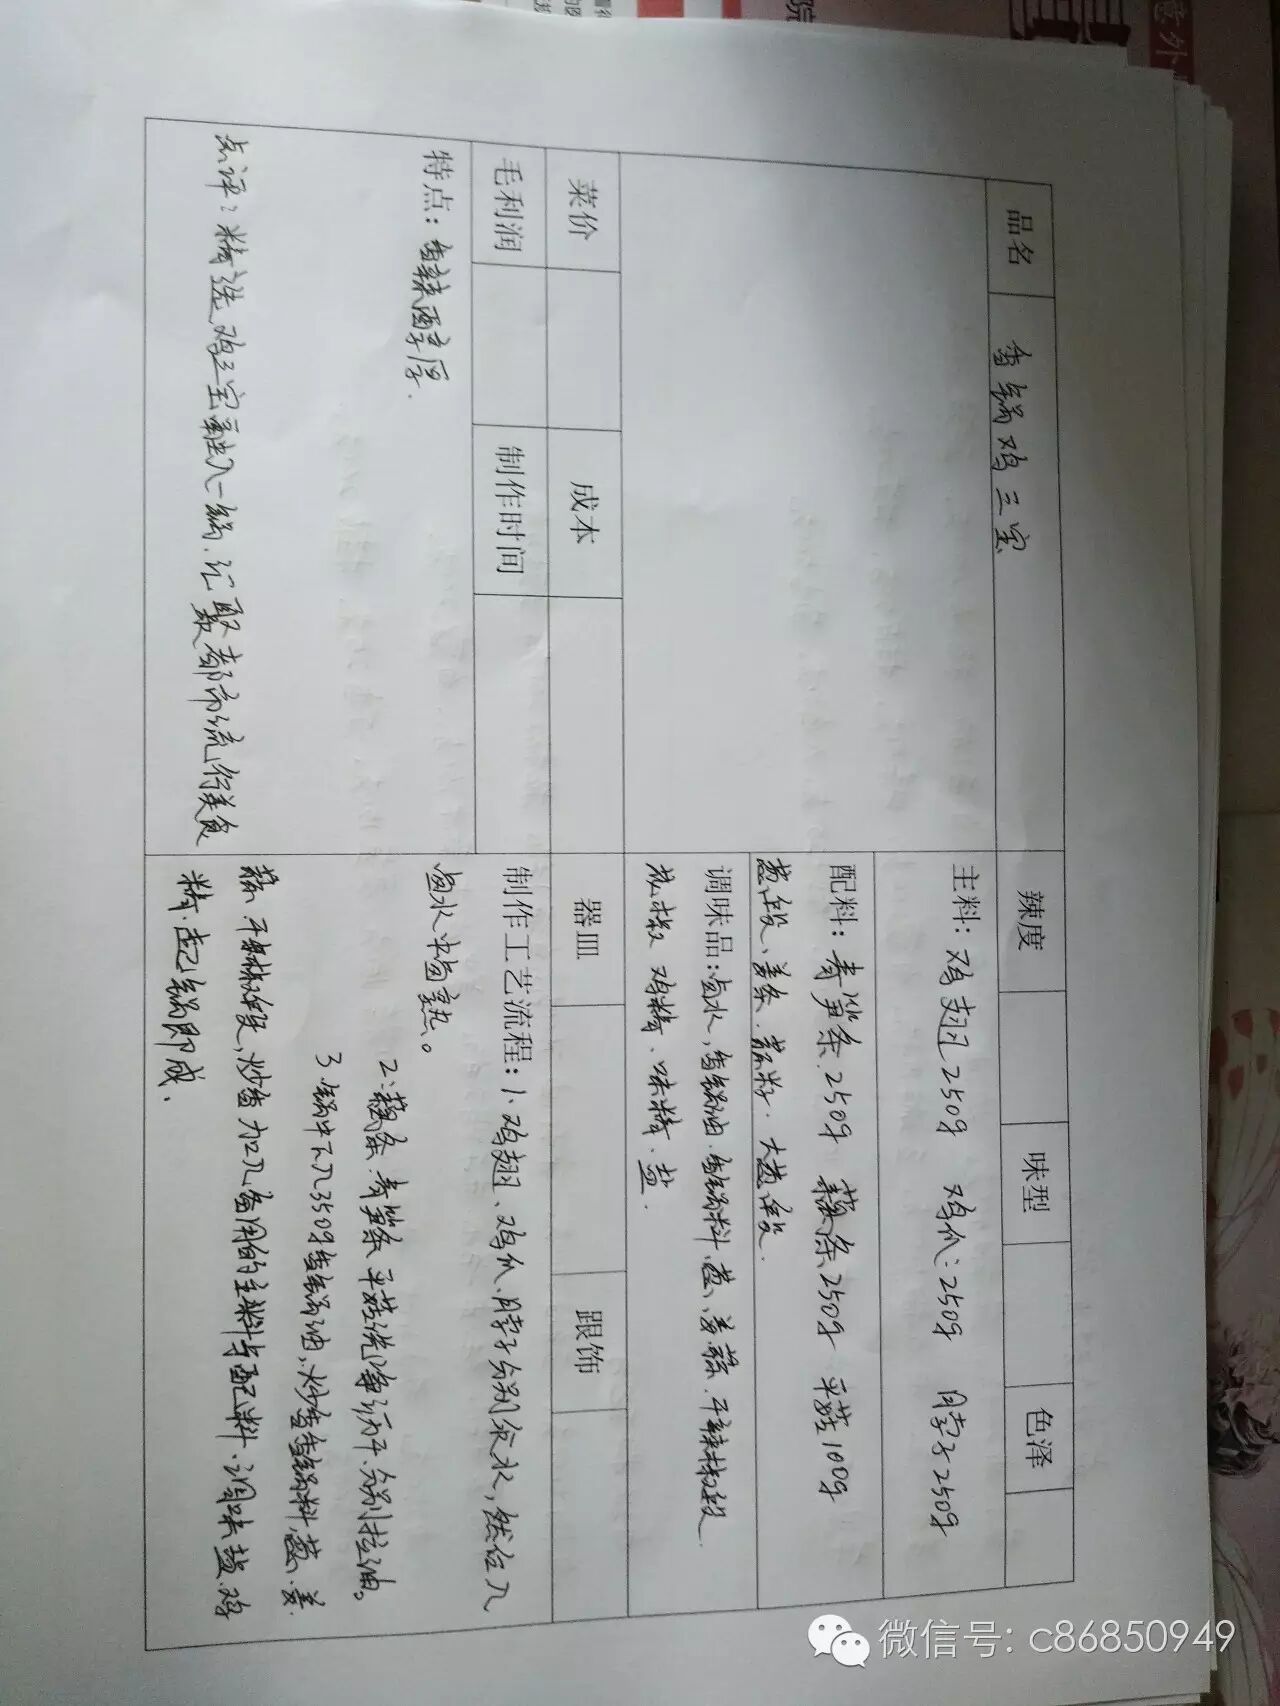 品名 香锅鸡三宝 辣度 味型 色泽
主料：鸡翅250g 鸡爪：250g 脖子250g
配料：青笋条250g 藕条250g 平菇100g
葱段、姜条、蒜籽、大葱段
调味品：卤水，香锅油、香锅料、葱、姜、蒜、干辣椒段
花椒 鸡精、味精、盐.
菜价 成本 器皿 跟饰
毛利润 制作时间
特点：香辣醇厚.
点评：精选鸡三宝融入一锅.汇聚都市流行美食
制作工艺流程：1.鸡翅、鸡爪、脖子分别汆水，然后入
卤水中卤熟。
2.藕条.青笋条 平菇洗净沥干.分别拉油。
3.锅中下入350g香锅油，炒香香锅料、葱、姜.
蒜、干辣椒段，炒香加入备用的主料与配料.调味盐.鸡
精.起锅即成.
微信号: c86850949
意外
院